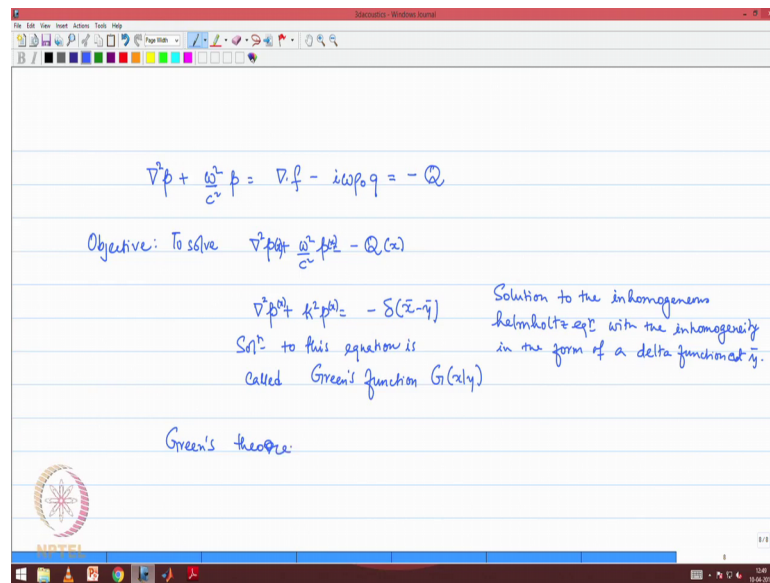 3dacoustics - Windows Journal
File Edit View Insert Actions Tools Help
Page Width
B I
∇²p + ω²/c² p = ∇.f - iωρ₀q = - Q
Objective: To solve ∇²p(x) + ω²/c² p(x) = - Q(x)
∇²p(x) + k²p(x) = - δ(x̄-ȳ)
Solⁿ to this equation is
called Green's function G(x|y)
Solution to the inhomogeneous
helmholtz eqⁿ with the inhomogeneity
in the form of a delta function at ȳ.
Green's theore
NPTEL
8/8
8
12:49